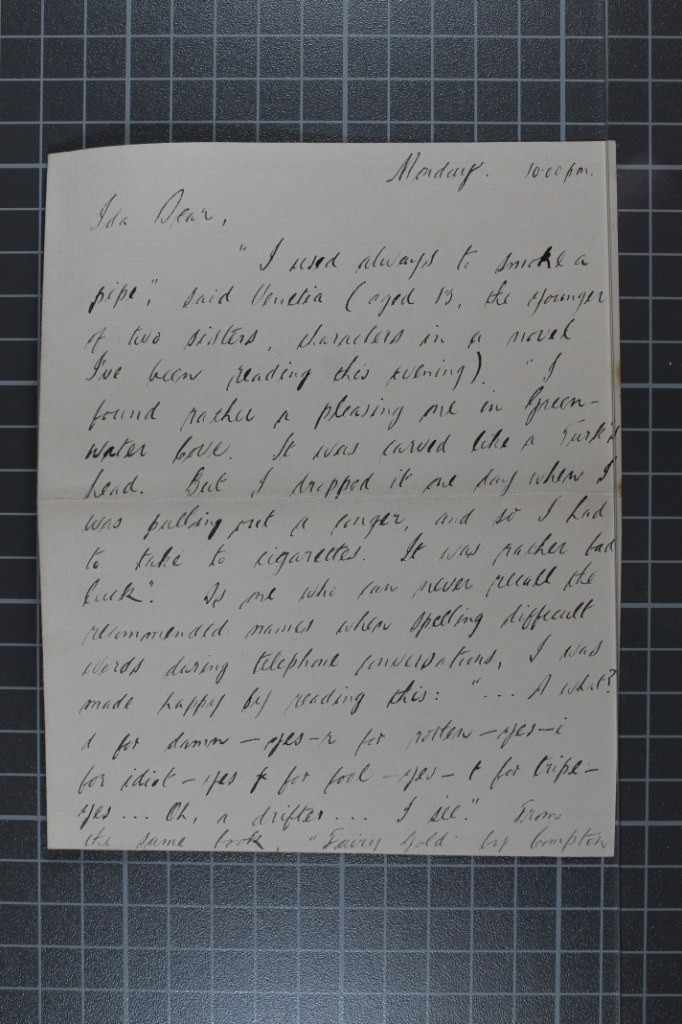 Monday. 10.00 pm.
Ida Dear,
"I used always to smoke a
pipe", said Venetia (aged 13, the younger
of two sisters, characters in a novel
I've been reading this evening). "I
found rather a pleasing one in Green-
water Cove. It was carved like a Turk's
head. But I dropped it one day when I
was pulling out a conger, and so I had
to take to cigarettes. It was rather bad
luck". As one who can never recall the
recommended names when spelling difficult
words during telephone conversations, I was
made happy by reading this: "... A what?
d for damn - yes - r for rotten - yes - i
for idiot - yes f for fool - yes - t for tripe -
yes ... Oh, a drifter ... I see." From
the same book, "Fairy Gold" by Compton